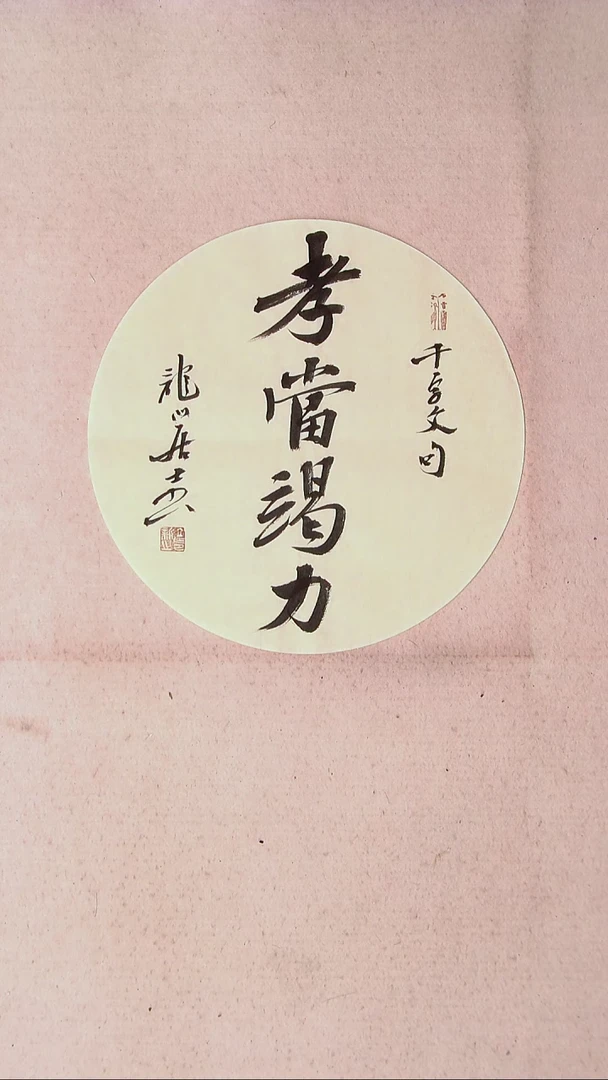 千字文句
孝當竭力
龍山居士書